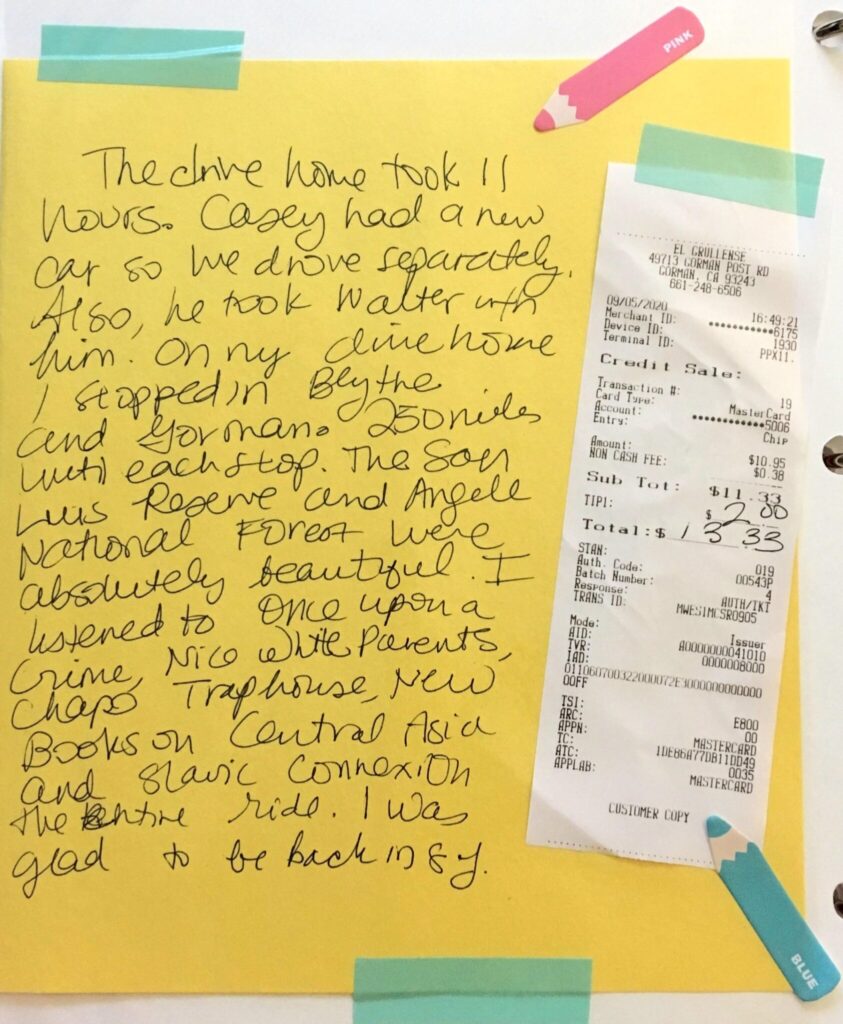 PINK
The drive home took 11
hours. Casey had a new
car so we drove separately.
Also, he took Walter with
him. On my drive home
I stopped in Blythe
and Gorman. 250 miles
until each stop. The San
Luis Reserve and Angele
National Forest were
absolutely beautiful. I
listened to Once upon a
Crime, Nice White Parents,
Chapo Traphouse, New
Books on Central Asia
and Slavic Connexion
the entire ride. I was
glad to be back in SJ.
EL GRULLENSE
49713 GORMAN POST RD
GORMAN, CA 93243
661-248-6506
09/05/2020 16:49:21
Merchant ID: ************6175
Device ID: 1930
Terminal ID: PPX11.
Credit Sale:
Transaction #: 19
Card Type: MasterCard
Account: ************5006
Entry: Chip
Amount: $10.95
NON CASH FEE: $0.38
Sub Tot: $11.33
TIP1: $ 2.00
Total:$ 13.33
STAN: 019
Auth. Code: 00543P
Batch Number: 4
Response: AUTH/TKT
TRANS ID: MWESIMCSR0905
Mode: Issuer
AID: A0000000041010
TVR: 0000008000
IAD:
00FF
TSI: E800
ARC: 00
APPN: MASTERCARD
TC: 1DEB6A77DB11DD49
ATC: 0035
APPLAB: MASTERCARD
CUSTOMER COPY
BLUE